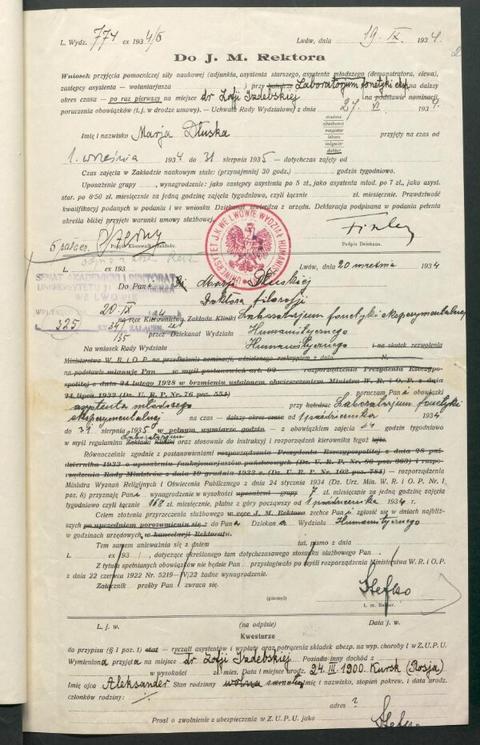 L. Wydz. 774 ex 1934/5 Lwów, dnia 19. IX. 1934.
Do J. M. Rektora
Wniosek przyjęcia pomocniczej siły naukowej (adjunkta, asystenta starszego, asystenta młodszego (demonstratora, elewa),
zastępcy asystenta — wolontariusza przy katedrze Laboratorjum fonetyki eksp. na dalszy
okres czasu — po raz pierwszy na miejsce dr Zofji Izdebskiej na podstawie nominacji,
poruczenia obowiązków (t. j. w drodze umowy). — Uchwała Rady Wydziałowej z dnia 27. VI. 1934.
Imię i nazwisko Marja Dłuska przyjęty na czas od
1. września 1934 do 31 sierpnia 1935 — dotychczas zajęty od
Czas zajęcia w Zakładzie naukowym stale: (przynajmniej 30 godz.) godzin tygodniowo.
Uposażenie grupy , wynagrodzenie: jako zastępcy asystenta po 5 zł., jako asystenta młod. po 7 zł., jako asyst.
star. po 8·50 zł. miesięcznie za jedną godzinę zajęcia tygodniowo, czyli łącznie zł. miesięcznie. Prawdziwość
kwalifikacyj podanych w podaniu i we wniosku Dziekanat stwierdza z urzędu. Deklaracja podpisana w podaniu petenta
określa bliżej przyjęte warunki umowy służbowej.
Podpis Kierownika Zakładu. Podpis Dziekana.
UNIWERSYTET J. K. WE LWOWIE WYDZIAŁ HUMANIST.
L. ex 193 Lwów, dnia 20 września 1934
SENAT AKADEMICKI I REKTORAT
UNIWERSYTETU
WE LWOWIE
325
Do Pani Marji Dłuskiej
Doktora filozofji
na ręce Kierownictwa Zakładu Kliniki Laboratorjum fonetyki eksperymentalnej
przez Dziekanat Wydziału Humanistycznego
Na wniosek Rady Wydziału Humanistycznego i na skutek zezwolenia
Ministerstwa W. R. i O. P. na przedłożenie nominacji, udzielonego reskryptem z dnia N.
na podstawie mianuję Pan w myśl postanowień art. 93 rozporządzenia Prezydenta Rzeczy-
pospolitej z dnia 24 lutego 1928 w brzmieniu ustalonem obwieszczeniem Ministra W. R. i O. P. z dnia
24 lipca 1933 (Dz. U. R. P. Nr. 76 poz. 551) poruczam Pani obowiązki
asystenta młodszego przy katedrze Laboratorjum fonetyki
eksperymentalnej na czas — dalszy okres czasu — od 1 października 1934
do 31 sierpnia 1935 w pełnym wymiarze godzin — z obowiązkiem zajęcia 24 godzin tygodniowo
w myśl regulaminu Laboratorjum oraz stosownie do instrukcji i rozporządzeń kierownika tegoż
Równocześnie zgodnie z postanowieniami rozporządzenia Prezydenta Rzeczypospolitej z dnia 28 paź-
dziernika 1933 o uposażeniu funkcjonarjuszów państwowych (Dz. U. R. P. Nr. 86 poz. 669) i rozpo-
rządzenia Rady Ministrów z dnia 19 grudnia 1933 — rozporządzenia
Ministra Wyznań Religijnych i Oświecenia Publicznego z dnia 24 stycznia 1934 (Dz. Urz. Min. W. R. i O. P. Nr. 1
poz. 6) przyznaję Pani wynagrodzenie w wysokości uposażeni grupy 7 zł. miesięcznie za jedną godzinę zajęcia
tygodniowo czyli łącznie 168 zł. miesięcznie, płatne z góry począwszy od 1 października 1934.
Celem złożenia przyrzeczenia służbowego w ręce J. M. Rektora zechce Pani zgłosić się w dniach najbliż-
szych po uprzedniem porozumieniu się z do Pana Dziekana Wydziału Humanistycznego
w godzinach urzędowych, w kancelarji Rektoratu.
Tem samem unieważnia się z dniem tut. pismo z dnia
L. ex 193 , dotyczące określonego tam dotychczasowego stosunku służbowego Pan
Z tytułu spełnianych obowiązków nie przysługiwało po myśli rozporządzenia Ministra W. R. i O. P.
z dnia 22 czerwca 1922 Nr. 5219—IV/22 żadne wynagrodzenie.
Załączniki prośby Pan zwraca się.
Stefko
(pieczęć) i. m. Rektor.
L. j. w. Data j. w.
(na odpisie)
Kwesturze
do przypisu (§ 1 poz. 1) etat — ryczałt asystentów i wypłaty oraz potrącenia składek ubezp. na wyp. choroby i w Z. U. P. U.
Wymieniona przyjęta na miejsce dr Zofji Izdebskiej. Posiada inny dochód z
w wysokości zł. mies. Data i miejsce urodz. 24. III. 1900. Kursk (Rosja)
Imię ojca Aleksander Stan rodzinny wolna imię i nazwisko, stopień pokrew. i data urodz.
członków rodziny:
adres ?
Prosi o zwolnienie z ubezpieczenia w Z. U. P. U. jako
Stefko